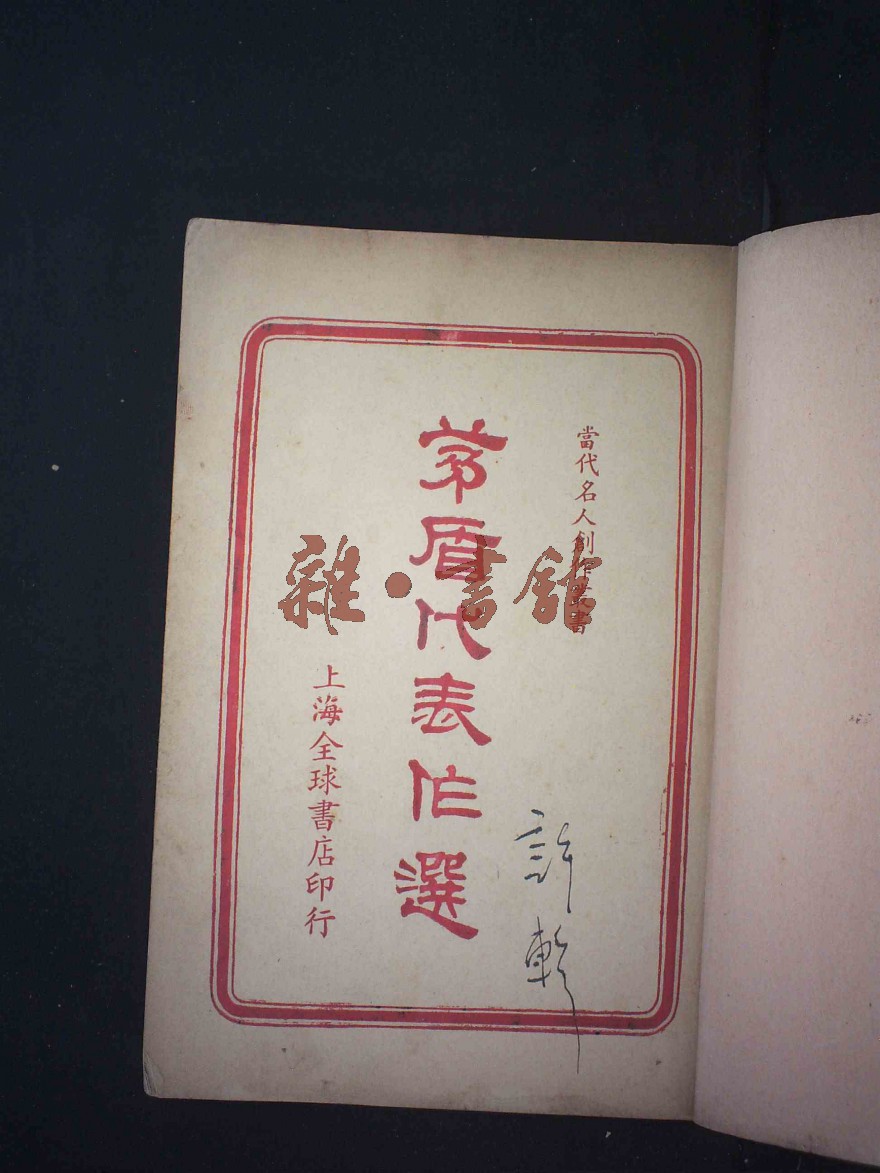 當代名人創作叢書
茅盾代表作選
上海全球書店印行
許軒
雜·書館